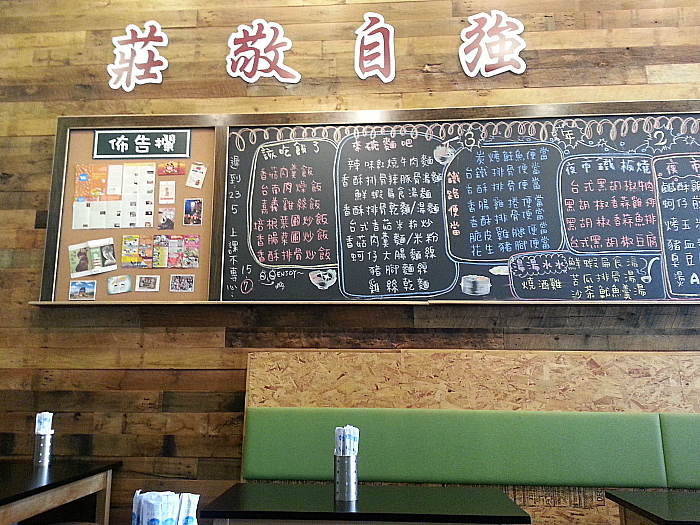 莊敬自強
佈告欄
遲到235
上課不專心：15、17
該吃飯了
香菇肉羹飯
台南肉燥飯
嘉義雞絲飯
培根菜圃炒飯
香腸菜圃炒飯
香酥排骨炒飯
ENJOY
來碗麵吧
辣味紅燒牛肉麵
香酥排骨辣豚骨湯麵
鮮蝦扁食湯麵
香酥排骨乾麵/湯麵
台式香菇米粉炒
香菇肉羹麵/米粉
蚵仔大腸麵線
豬腳麵線
雞絲乾麵
鐵路便當
炭烤魚便當
台鐵排骨便當
香酥排骨便當
香腸雞捲便當
香酥魚排便當
脆皮雞腿便當
花生豬腳便當
年
2
夜市鐵板燒
台式黑胡椒牛肉
黑胡椒香蒜雞排
黑胡椒香蒜魚排
台式黑胡椒豆腐
湯湯水水
燒酒雞
鮮蝦扁食湯
苦瓜排骨湯
沙茶魷魚羹湯
夜市
鹹酥
蚵仔煎
烤玉米
臭豆
A